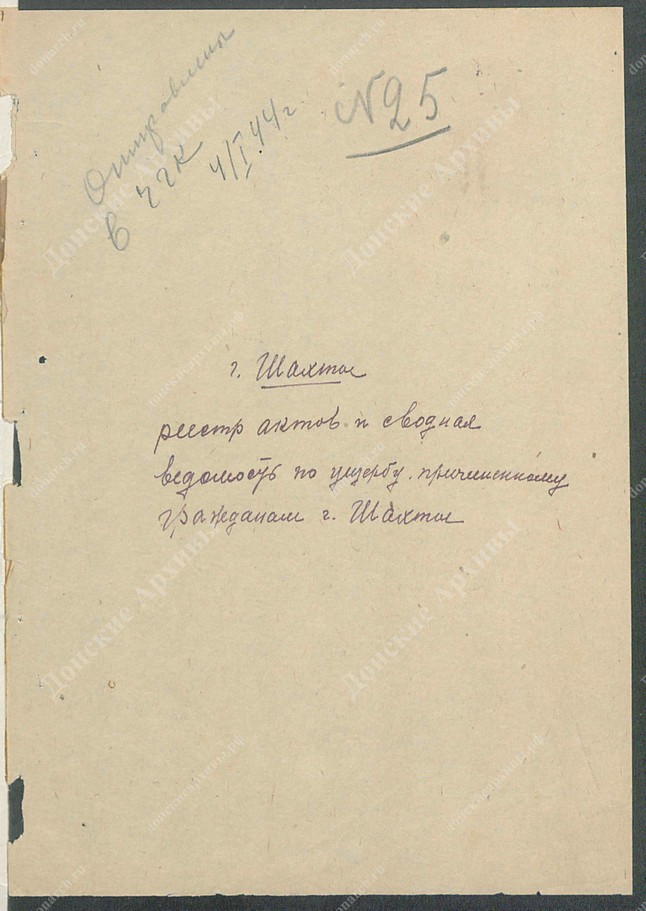 Отправлены
в ЧГК 4/I 44 г
№ 25
г. Шахты
реестр актов и сводная
ведомость по ущербу, причиненному
гражданам г. Шахты
Донские Архивы
donarch.ru